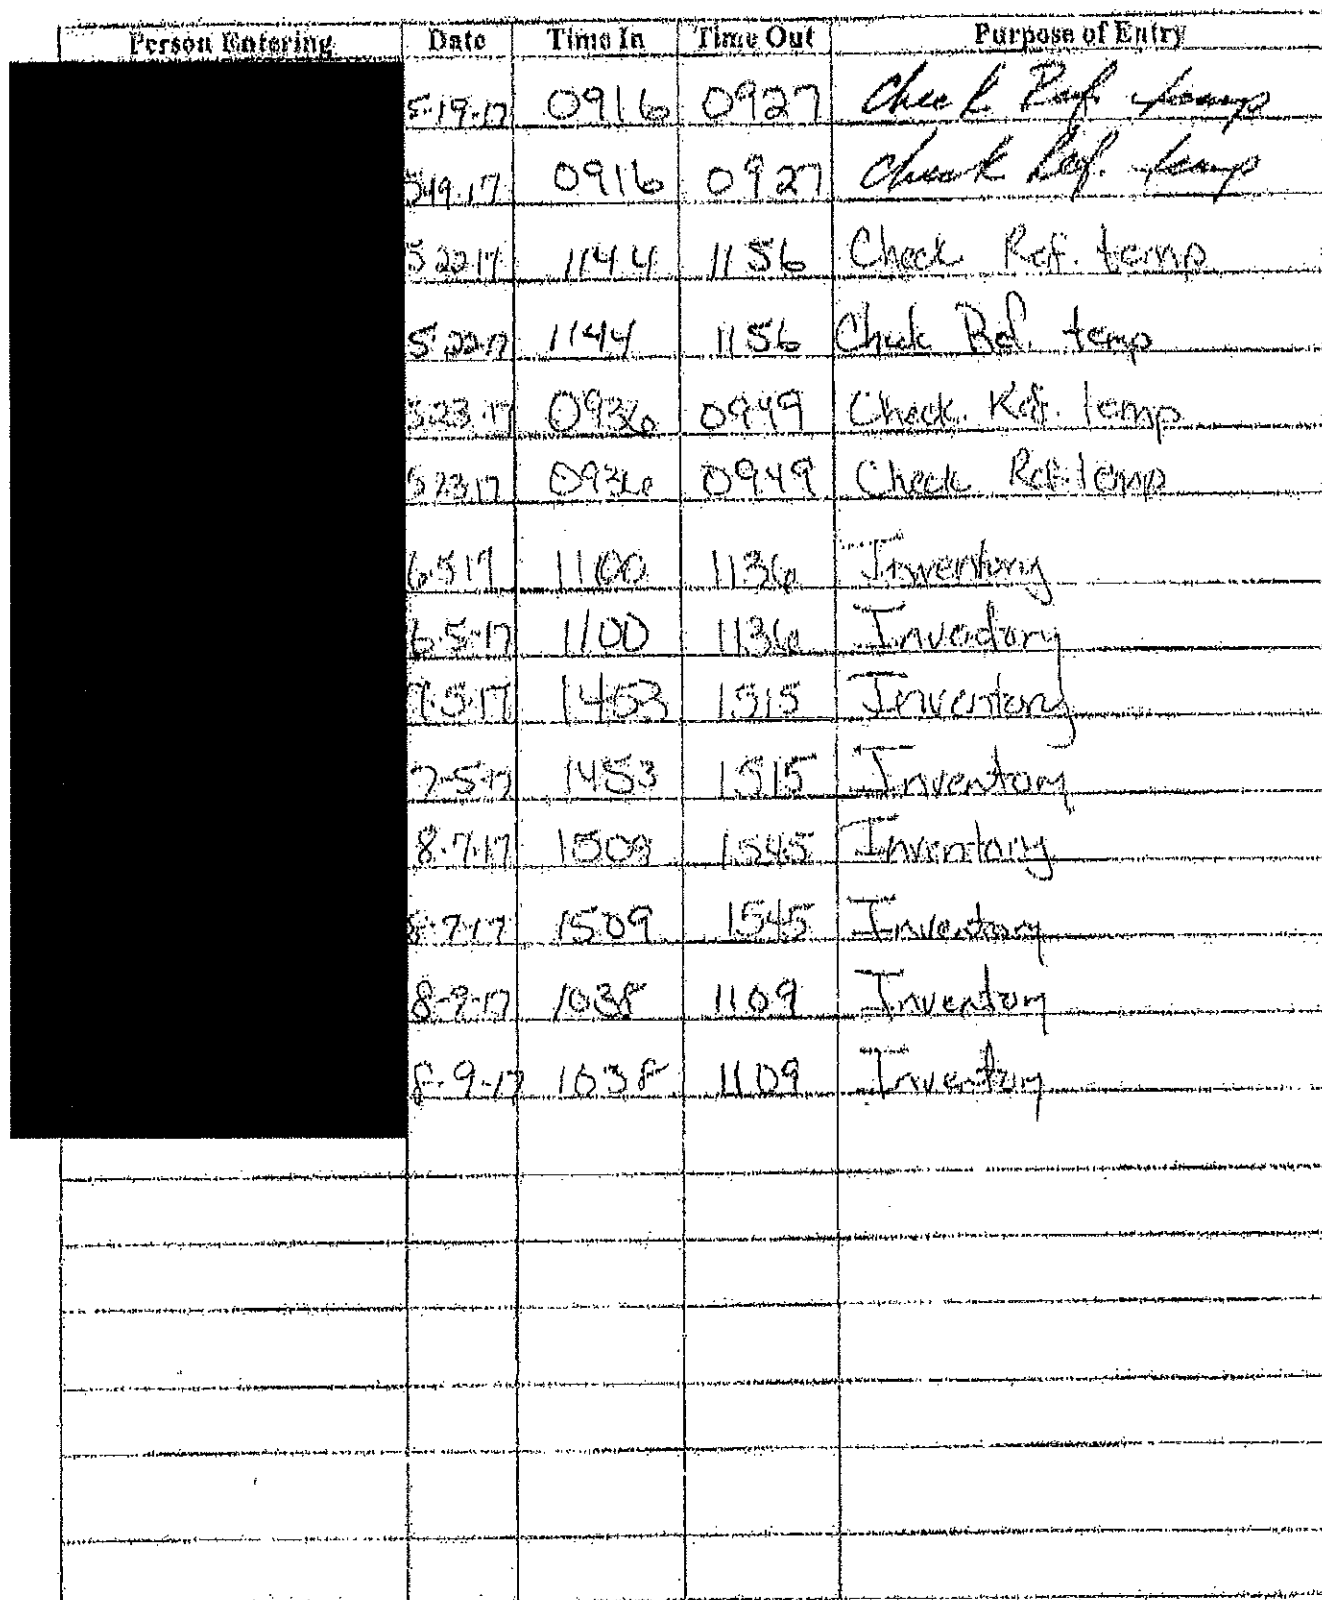 Person Entering Date Time In Time Out Purpose of Entry
5-19-17 0916 0927 Check Ref. temp
5-19-17 0916 0927 Check Ref. temp
5-22-17 1144 1156 Check Ref. temp
5-22-17 1144 1156 Check Ref. temp
5-23-17 0936 0949 Check Ref. temp
5-23-17 0936 0949 Check Ref. temp
6-5-17 1100 1136 Inventory
6-5-17 1100 1136 Inventory
7-5-17 1453 1515 Inventory
7-5-17 1453 1515 Inventory
8-7-17 1509 1545 Inventory
8-7-17 1509 1545 Inventory
8-9-17 1038 1109 Inventory
8-9-17 1038 1109 Inventory